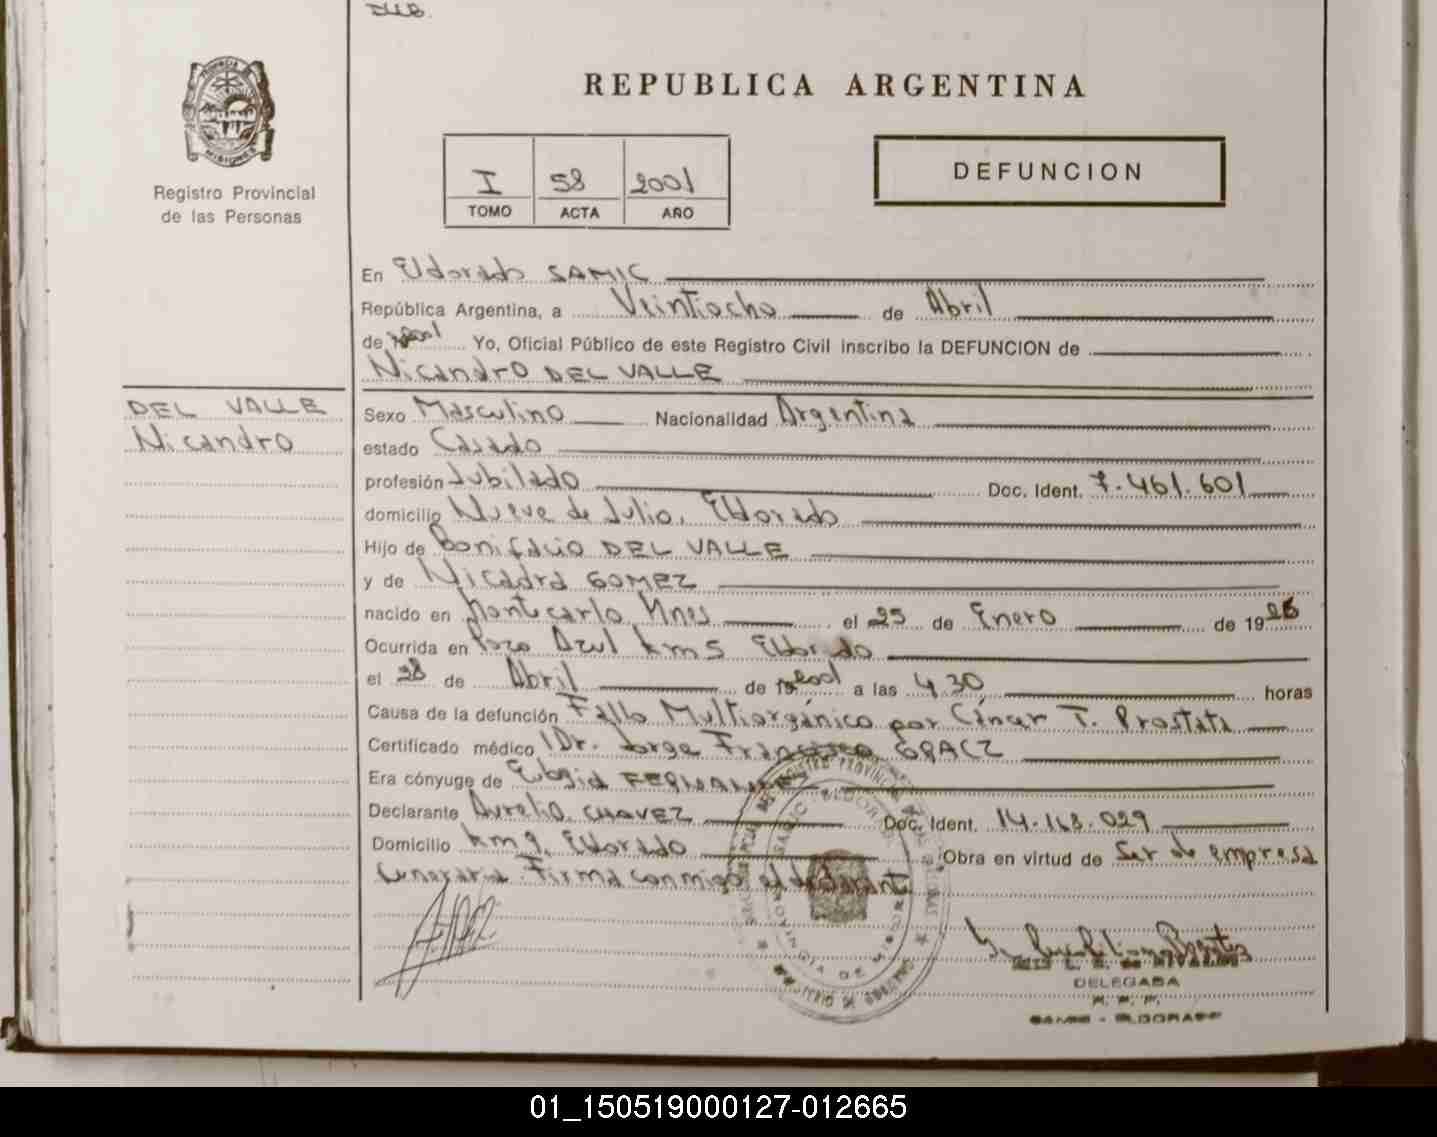 REPUBLICA ARGENTINA
PROVINCIA DE
MISIONES
Registro Provincial
de las Personas
I 58 2001
TOMO ACTA AÑO
DEFUNCION
En Eldorado SAMIC
República Argentina, a Veintiocho de Abril
de 2001 Yo, Oficial Público de este Registro Civil inscribo la DEFUNCION de
Nicandro DEL VALLE
DEL VALLE
Nicandro
Sexo Masculino Nacionalidad Argentina
estado Casado
profesión Jubilado Doc. Ident. 7.461.601
domicilio Nueve de Julio, Eldorado
Hijo de Bonifacio DEL VALLE
y de Nicadra GOMEZ
nacido en Montecarlo Mnes el 25 de Enero de 1926
Ocurrida en Pozo Azul km 5 Eldorado
el 28 de Abril de 2001 a las 4,30 horas
Causa de la defunción Fallo Multiorgánico por Cáncer T. Prostata
Certificado médico Dr. Jorge Francisco
Era cónyuge de
Declarante Aurelio CHAVEZ Doc. Ident. 14.168.029
Domicilio km 9, Eldorado Obra en virtud de Ser de empresa
funeraria. Firma conmigo el declarante
DELEGADA
R. P. P.
SAMIC - ELDORADO
01_150519000127-012665